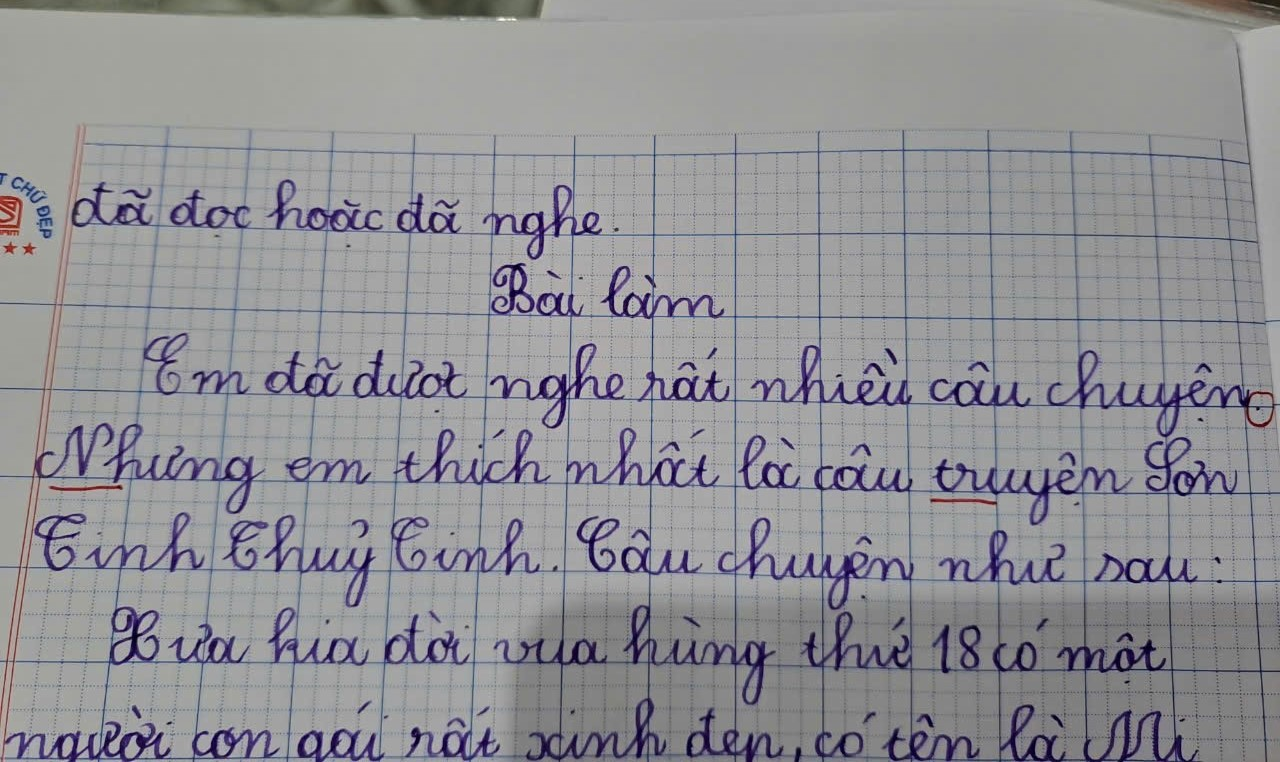 T CHỮ ĐẸP
đã đọc hoặc đã nghe.
Bài làm
Em đã được nghe rất nhiều câu chuyện.
Nhưng em thích nhất là câu truyện Sơn
Tinh Thuỷ Tinh. Câu chuyện như sau:
Xưa kia đời vua hùng thứ 18 có một
người con gái rất xinh đẹp, có tên là Mị